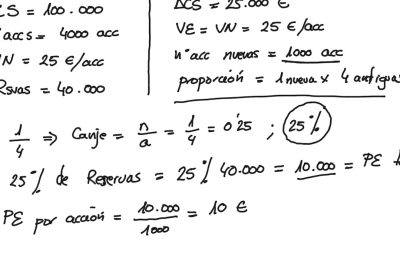 CS = 100.000
nº accs = 4000 acc
VN = 25 €/acc
Rsvas = 40.000
ΔCS = 25.000 €
VE = VN = 25 €/acc
nº acc nuevas = 1000 acc
proporción = 1 nueva x 4 antiguas
1/4 ⇒ Canje = n/a = 1/4 = 0'25 ; 25%
25% de Reservas = 25% 40.000 = 10.000 = PE
PE por acción = 10.000/1000 = 10 €